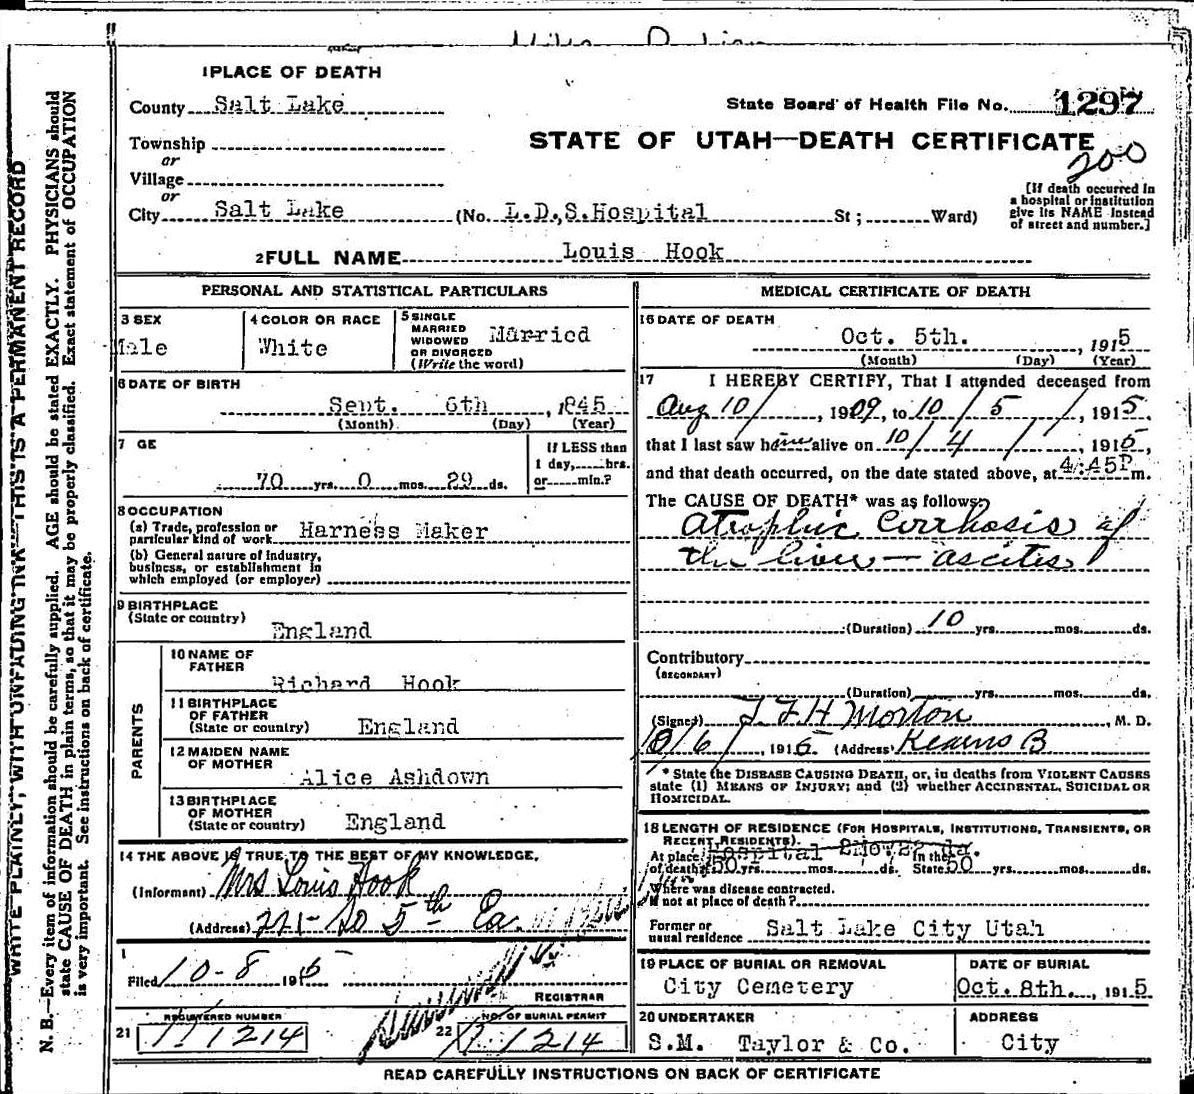 1 PLACE OF DEATH
County Salt Lake
State Board of Health File No. 1297
Township
STATE OF UTAH—DEATH CERTIFICATE
or
200
Village
or
City Salt Lake (No. L.D.S.Hospital St ; Ward)
[If death occurred in
a hospital or institution
give its NAME instead
of street and number.]
2 FULL NAME Louis Hook
PERSONAL AND STATISTICAL PARTICULARS
3 SEX
Male
4 COLOR OR RACE
White
5 SINGLE
MARRIED
WIDOWED
OR DIVORCED
(Write the word)
Married
6 DATE OF BIRTH
Sept. 6th , 1845
(Month) (Day) (Year)
7 GE
70 yrs. 0 mos. 29 ds.
If LESS than
1 day, hrs.
or min.?
8 OCCUPATION
(a) Trade, profession or
particular kind of work Harness Maker
(b) General nature of industry,
business, or establishment in
which employed (or employer)
9 BIRTHPLACE
(State or country)
England
PARENTS
10 NAME OF
FATHER
Richard Hook
11 BIRTHPLACE
OF FATHER
(State or country) England
12 MAIDEN NAME
OF MOTHER
Alice Ashdown
13 BIRTHPLACE
OF MOTHER
(State or country) England
14 THE ABOVE IS TRUE TO THE BEST OF MY KNOWLEDGE.
(Informant) Mrs Louis Hook
(Address) 221 So 5th Ea.
Filed 10-8 1915
REGISTRAR
REGISTERED NUMBER
21 1214
NO. OF BURIAL PERMIT
22 1214
MEDICAL CERTIFICATE OF DEATH
16 DATE OF DEATH
Oct. 5th. , 1915
(Month) (Day) (Year)
17 I HEREBY CERTIFY, That I attended deceased from
Aug 10 / , 1909, to 10 / 5 / , 1915,
that I last saw him alive on 10 / 4 / , 1915,
and that death occurred, on the date stated above, at 4:45 P m.
The CAUSE OF DEATH* was as follows:
Atrophic Cirrhosis of
the liver — ascites
(Duration) 10 yrs. mos. ds.
Contributory
(SECONDARY)
(Duration) yrs. mos. ds.
(Signed) Morton , M. D.
10/6/ , 1915. (Address) Kearns B
* State the DISEASE CAUSING DEATH, or, in deaths from VIOLENT CAUSES
state (1) MEANS OF INJURY; and (2) whether ACCIDENTAL, SUICIDAL OR
HOMICIDAL.
18 LENGTH OF RESIDENCE (FOR HOSPITALS, INSTITUTIONS, TRANSIENTS, OR
RECENT RESIDENTS).
Hospital
At place In the
of death 50 yrs. mos. ds. State 50 yrs. mos. ds.
Where was disease contracted.
if not at place of death?
Former or
usual residence Salt Lake City Utah
19 PLACE OF BURIAL OR REMOVAL
City Cemetery
DATE OF BURIAL
Oct. 8th. , 1915
20 UNDERTAKER
S.M. Taylor & Co.
ADDRESS
City
READ CAREFULLY INSTRUCTIONS ON BACK OF CERTIFICATE
WRITE PLAINLY, WITH UNFADING INK—THIS IS A PERMANENT RECORD
N. B.—Every item of information should be carefully supplied. AGE should be stated EXACTLY. PHYSICIANS should
state CAUSE OF DEATH in plain terms, so that it may be properly classified. Exact statement of OCCUPATION
is very important. See instructions on back of certificate.